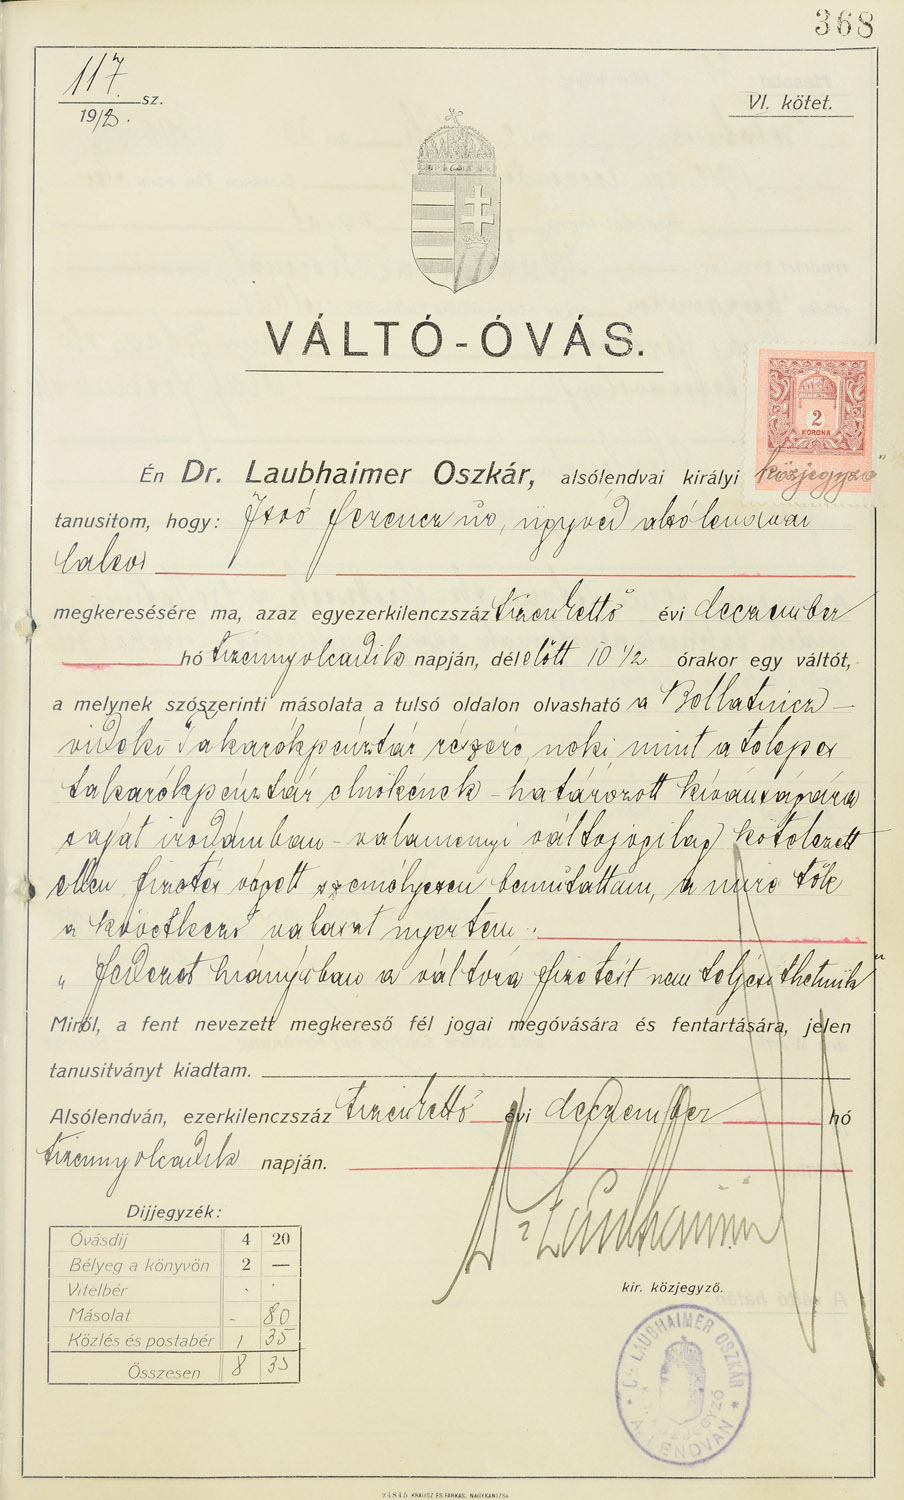 368
117. sz.
191
VI. kötet.
VÁLTÓ-ÓVÁS.
2
KORONA
Én Dr. Laubhaimer Oszkár, alsólendvai királyi közjegyző
tanusitom, hogy: Ferencz ur, ügyvéd alsólendvai
lakos
megkeresésére ma, azaz egyezerkilenczszáz tizenkettő évi deczember
hó tizennyolcadik napján, délelőtt 10 1/2 órakor egy váltót,
a melynek szószerinti másolata a tulsó oldalon olvasható a
vidéki Takarékpénztár részére, neki mint a
takarékpénztár elnökének - határozott kívánságára
saját irodámban - valamennyi váltójogilag kötelezett
ellen fizetés végett személyesen bemutattam, a mire tőle
a következő választ nyertem:
„Fedezet hiányában a váltóra fizetést nem teljesithetnik"
Miről, a fent nevezett megkereső fél jogai megóvására és fentartására, jelen
tanusitványt kiadtam.
Alsólendván, ezerkilenczszáz tizenkettő évi deczember hó
tizennyolcadik napján.
Dr Laubhaimer
kir. közjegyző.
Dijjegyzék:
Óvásdij 4 20
Bélyeg a könyvön 2 —
Vitelbér
Másolat - 80
Közlés és postabér 1 35
Összesen 8 35
Dr. LAUBHAIMER OSZKÁR
KÖZJEGYZŐ
A. LENDVÁN
24845 KRAUSZ ÉS FARKAS, NAGYKANIZSA